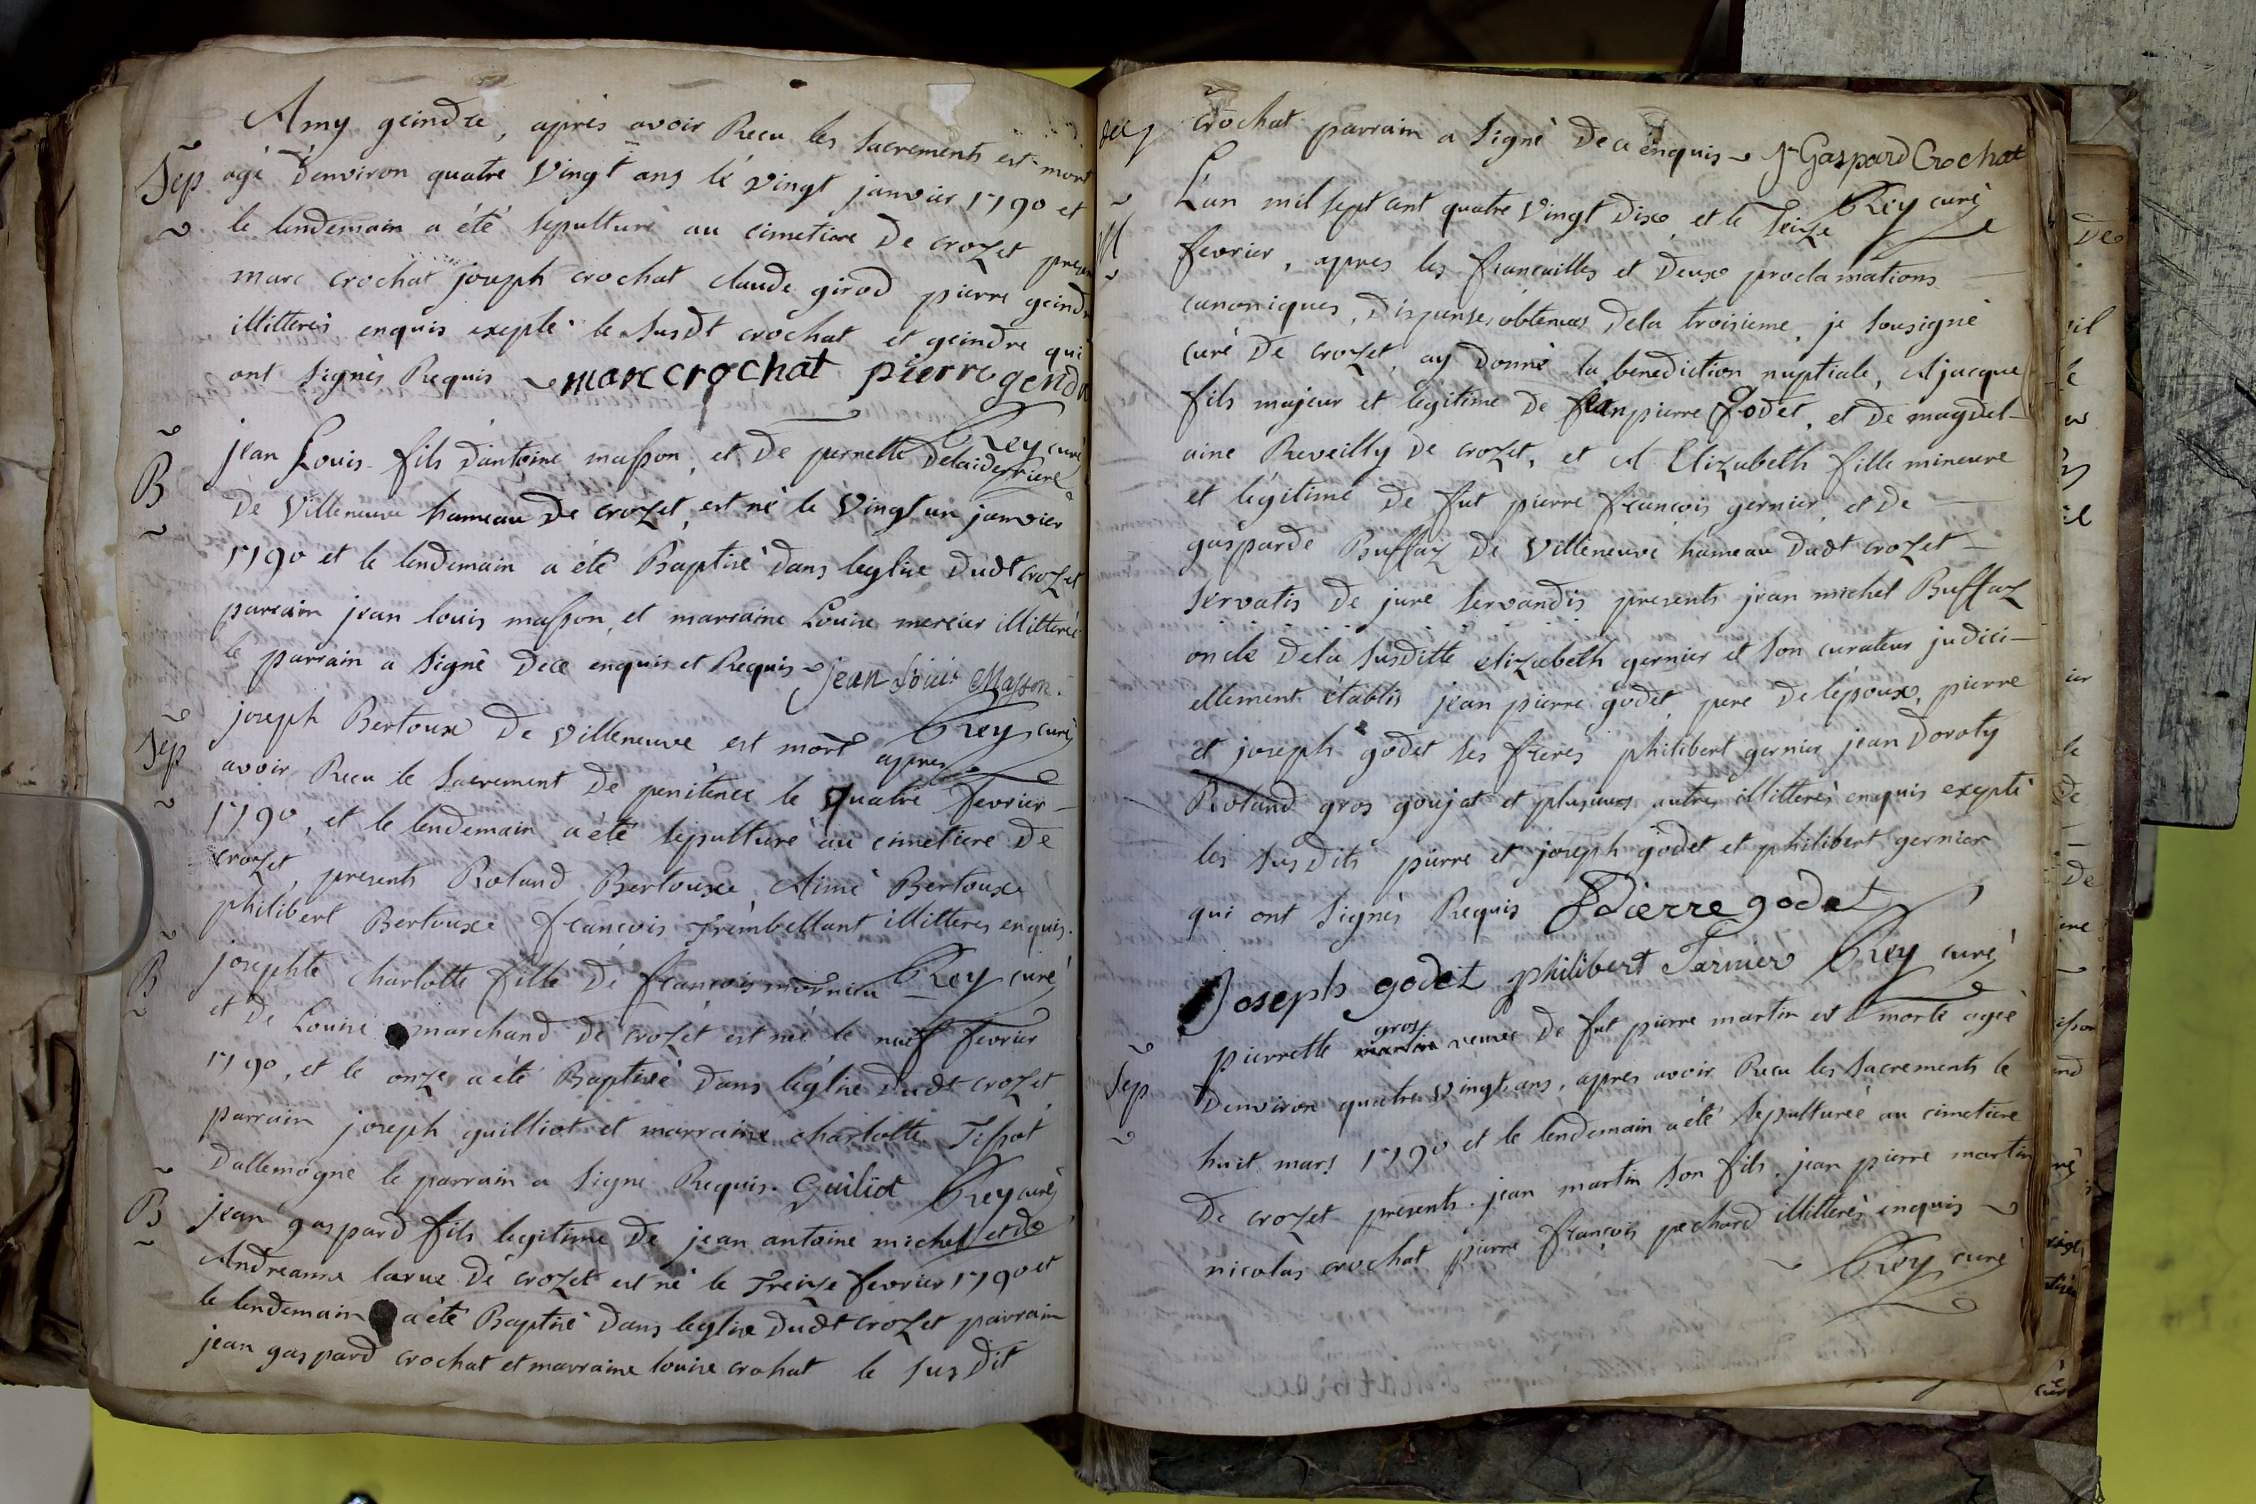 Amy geindre, après avoir Recu les sacrements est mort
Sep agé d'environ quatre vingt ans le vingt janvier 1790 et
le lendemain a été sepulturé au cimetiere de crozet presen
marc crochat joseph crochat claude girod pierre geindre
illitterés enquis exepté le susdt crochat et geindre qui
ont signés Requis marc crochat pierre gendr
Rey curé
B jean Louis fils d'antoine masson, et de pernette Delaiderriere
de villeneuve hameau de crozet, est né le vingt un janvier
1790 et le lendemain a été Baptisé dans leglise dudt crozet
parrain jean louis masson, et marraine Louise mercier illitterée
le parrain a signé de ce enquis et Requis jean Louis Masson
Rey curé
Sep joseph Bertouxe de villeneuve est mort apres
avoir Recu le sacrement de penitence le quatre fevrier
1790, et le lendemain a été sepulturé au cimetiere de
crozet, presents Roland Bertouxe Aimé Bertouxe
philibert Bertouxe francois Trembellant illitteres enquis.
Rey curé
B josephte charlotte fille de francois mornieu
et de Louise marchand de crozet est née le neuf fevrier
1790, et le onze a été Baptisée dans l'église dudt crozet
parrain joseph guilliot et marraine charlotte Tissot
dallemogne le parrain a signe Requis. Guiliot Rey curé
B jean gaspard fils legitime de jean antoine michel et de
Andreanne larue de crozet est né le Treize fevrier 1790 et
le lendemain a été Baptisé dans leglise dudt crozet parrain
jean gaspard crochat et marraine louise crohat le susdit
crochat parrain a signé de ce enquis jn Gaspard Crochat
Rey curé
M L'an mil sept cent quatre vingt dixe, et le seize
fevrier, apres les francailles et deuxe proclamations
canoniques, dispenses obtenues dela troisieme, je sousigné
curé de crozet, ay donné la benediction nuptiale, A jacque
fils majeur et legitime de jean pierre godet, et de magdel-
aine Reveilly de crozet, et A Elizabeth fille mineure
et légitime de fut pierre francois gernier, et de
gasparde Buffaz de villeneuve hameau dudt crozet
servatis de jure servandis presents jean michel Buffaz
oncle dela susditte elizabeth gernier et son curateur judici-
ellement établis jean pierre godet, pere de lépoux, pierre
et joseph godet ses freres philibert gernier jean Doroty
Roland gros goujat et plusieurs autres illitterés enquis exepté
les susdits pierre et joseph godet et philibert gernier
qui ont signés Requis Pierre godet
Joseph godet philibert Jarnier Rey curé
Sep pierrette gros veuve de fut pierre martin est morte agée
denviron quatre vingt ans, apres avoir Recu les sacrements le
huit mars 1790 et le lendemain a été sepulturée au cimetiere
de crozet presents jean martin son fils, jean pierre martin
nicolas crochat pierre francois pechard illitterés enquis
Rey curé